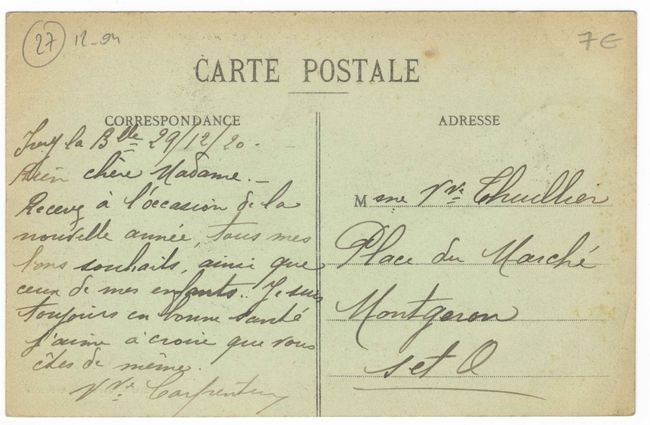 27
12-94
7€
CARTE POSTALE
CORRESPONDANCE
Ivry la Blle 29/12/20.
Bien chère Madame. _
Recevez à l'occasion de la
nouvelle année, tous mes
bons souhaits, ainsi que
ceux de mes enfants.. Je suis
toujours en bonne santé
j'aime à croire que vous
êtes de même.
Vve Carpentier
ADRESSE
Mme Vve Thuillier
Place du Marché
Montgeron
S et O